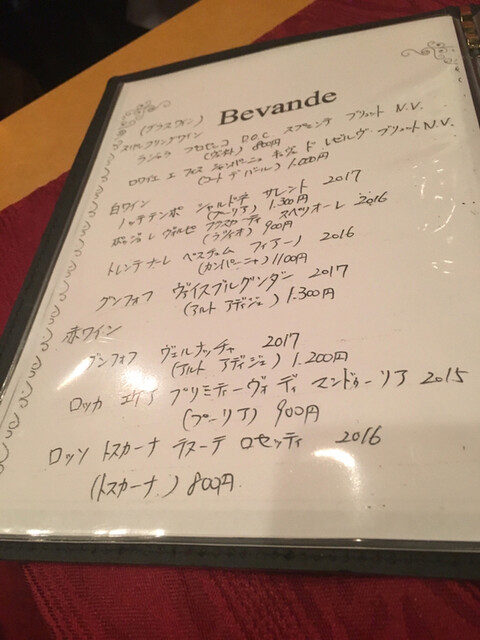 Bevande
(グラスワイン)
スパークリングワイン
プロセッコ D.O.C スプマンテ ブリュット N.V.
(ヴェネト) 800円
ロワイエ エ フィス シャンパーニュ キュヴェ ド レゼルヴ ブリュット N.V.
(コート デ バール) 1.000円
白ワイン
ノッテテンポ シャルドネ サレント 2017
(プーリア) 1.300円
ヴォルペ フラスカーティ スペリオーレ 2016
(ラツィオ) 900円
トレンテナーレ ペスチェム フィアーノ 2016
(カンパーニャ) 1100円
グンフォフ ヴァイスブルグンダー 2017
(アルト アディジェ) 1.300円
赤ワイン
グンフォフ ヴェルナッチャ 2017
(アルト アディジェ) 1.200円
ロッカ プリミティーヴォ ディ マンドゥーリア 2015
(プーリア) 900円
ロッソ トスカーナ テヌーテ ロセッティ 2016
(トスカーナ) 800円